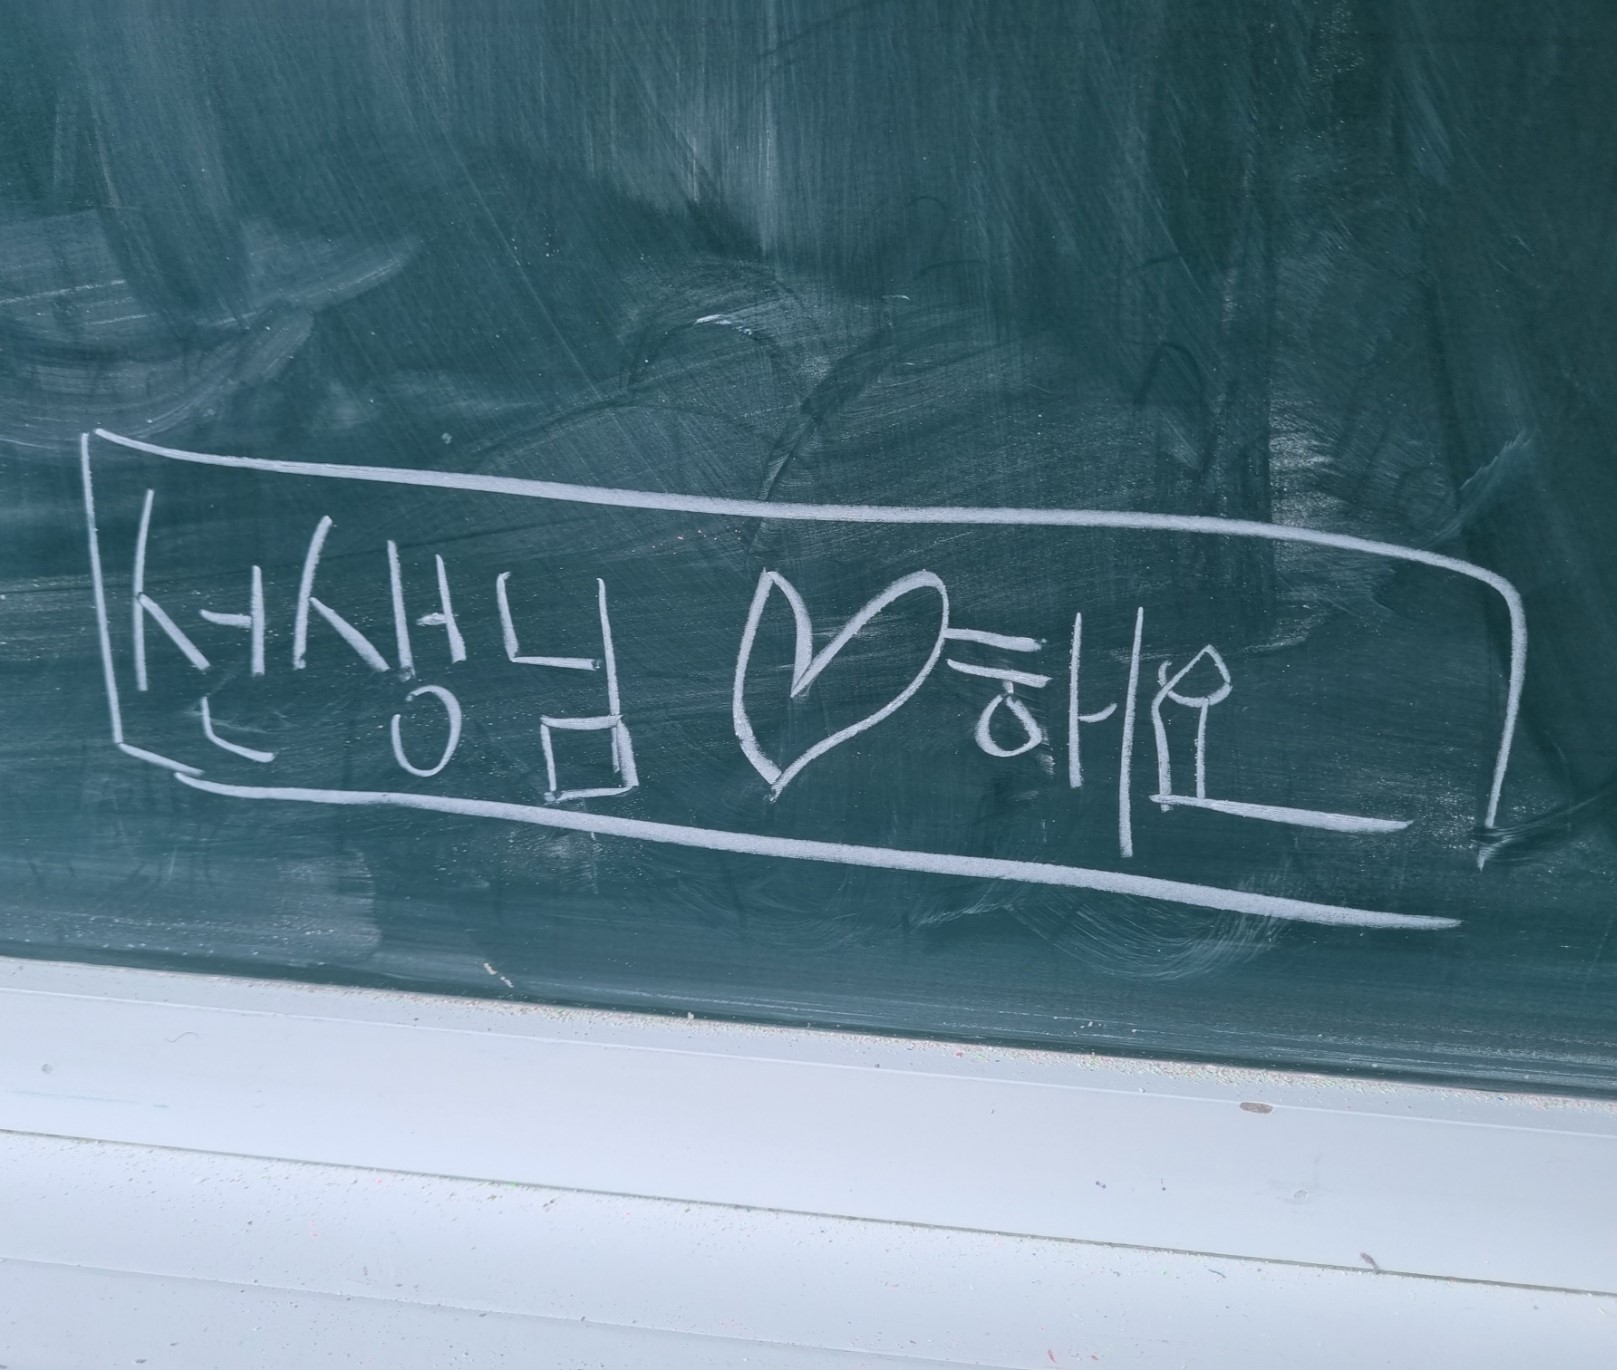 선생님♡해요